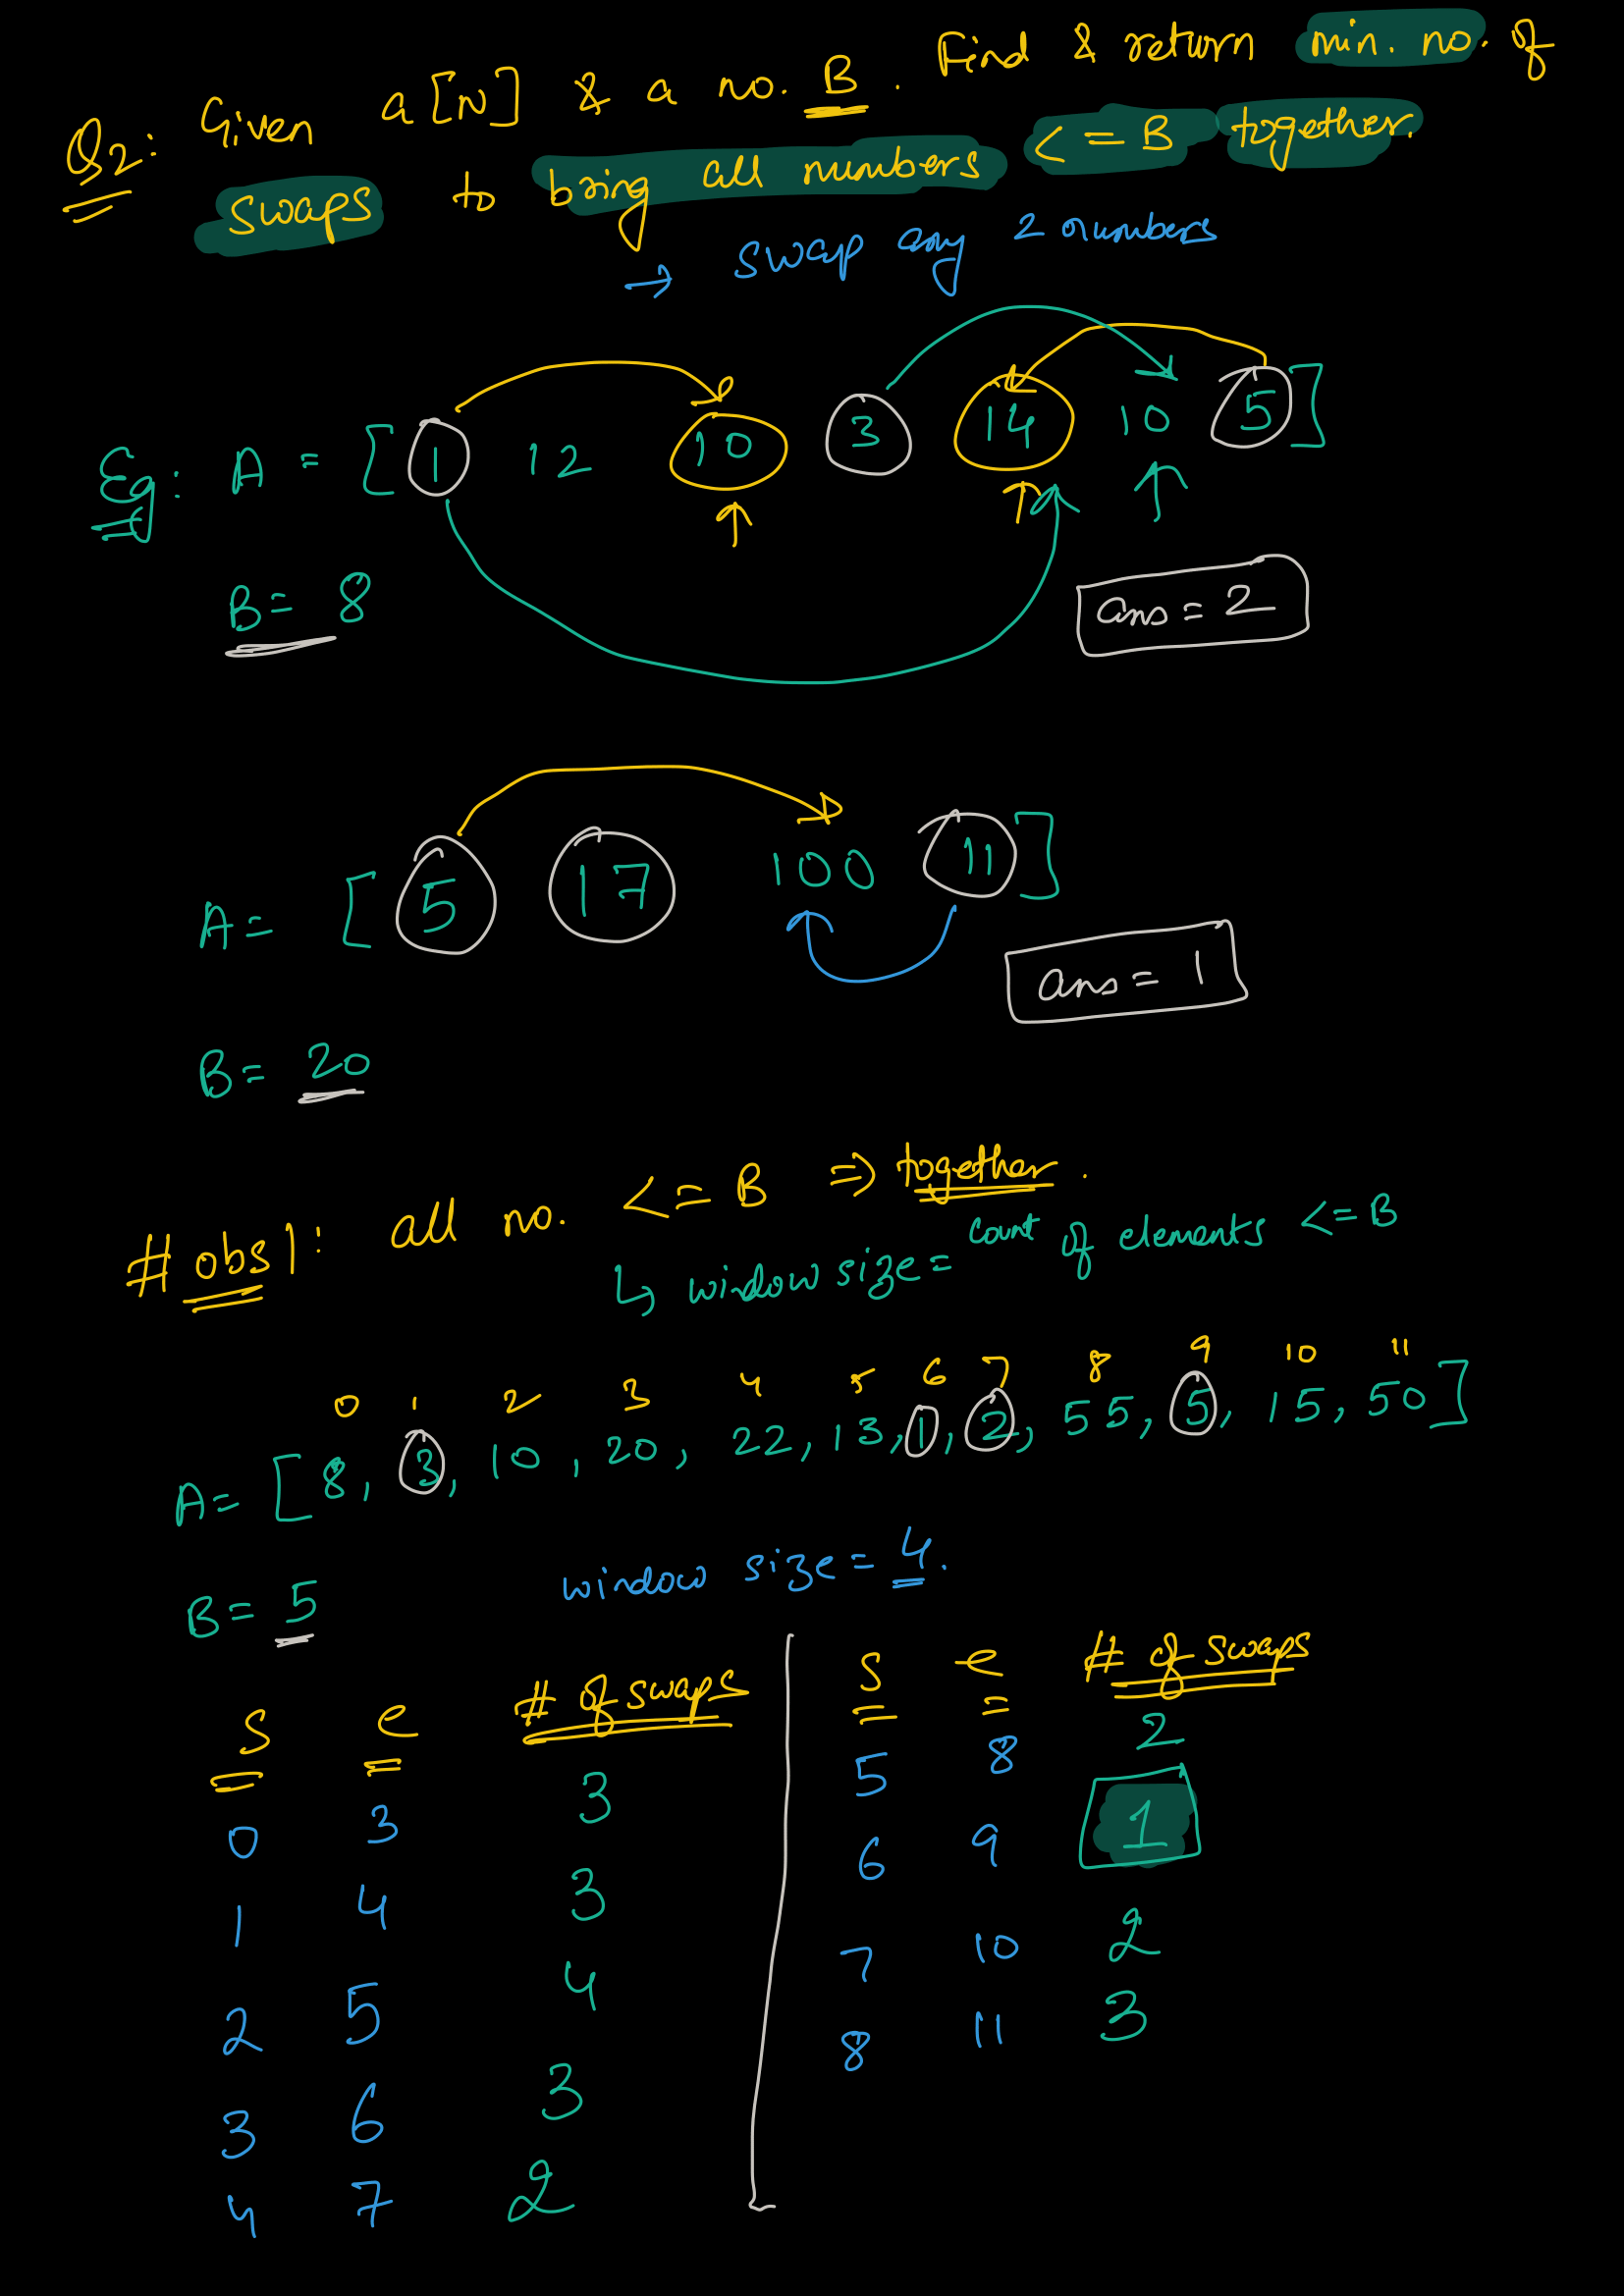 Q2: Given a[N] & a no. B. Find & return min. no. of
swaps to bring all numbers <= B together.
→ swap any 2 numbers
Eg: A = [ 1 12 10 3 14 10 5 ]
B = 8
ans = 2
A = [ 5 17 100 11 ]
ans = 1
B = 20
# obs1: all no. <= B ⇒ together.
↳ window size = count of elements <= B
0 1 2 3 4 5 6 7 8 9 10 11
A = [ 8, 3, 10, 20, 22, 13, 1, 2, 55, 5, 15, 50 ]
B = 5
window size = 4.
s e # of swaps
0 3 3
1 4 3
2 5 4
3 6 3
4 7 2
s e # of swaps
5 8 2
6 9 1
7 10 2
8 11 3